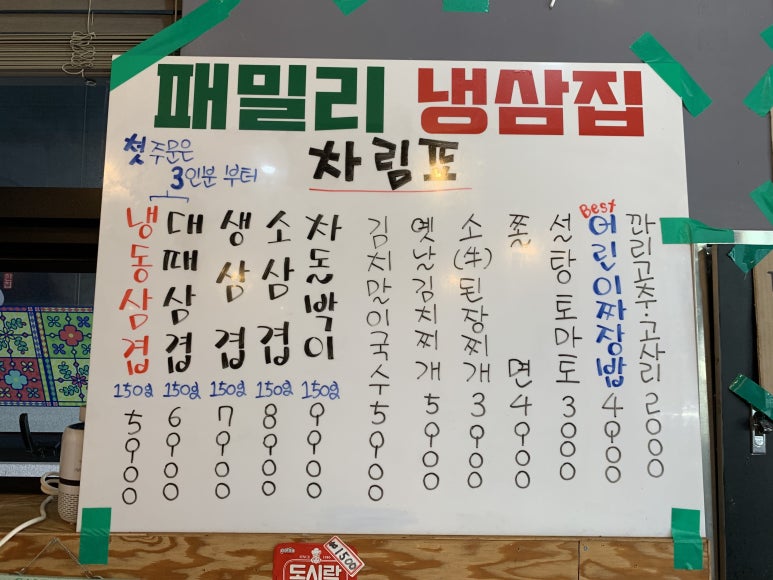 패밀리 냉삼집
첫 주문은
3인분 부터
차림표
냉동삼겹 150g 5900
대패삼겹 150g 6900
생삼겹 150g 7900
소삼겹 150g 8900
차돌박이 150g 9900
김치말이국수 5900
옛날김치찌개 5900
소(牛)된장찌개 3900
쫄면 4900
설탕토마토 3000
Best
어린이짜장밥 4900
꽈리고추·고사리 2000
도시락
₩1500